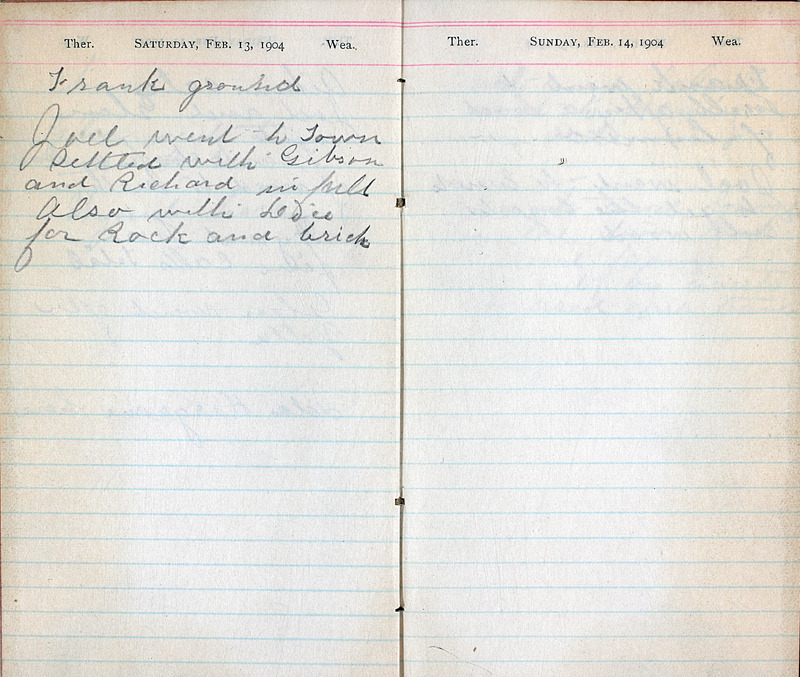 Ther. SATURDAY, FEB. 13, 1904 Wea.
Frank
Joel went to Town
Settled with Gibson
and Richard in full
Also with
for Rock and brick
Ther. SUNDAY, FEB. 14, 1904 Wea.